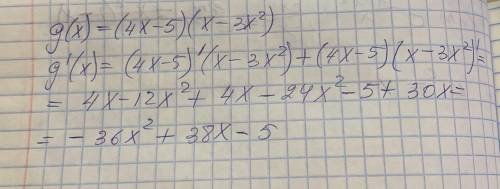 g(x) = (4x-5)(x-3x²)
g'(x) = (4x-5)'(x-3x²)+(4x-5)(x-3x²)'=
= 4x-12x²+4x-24x²-5+30x=
= -36x²+38x-5